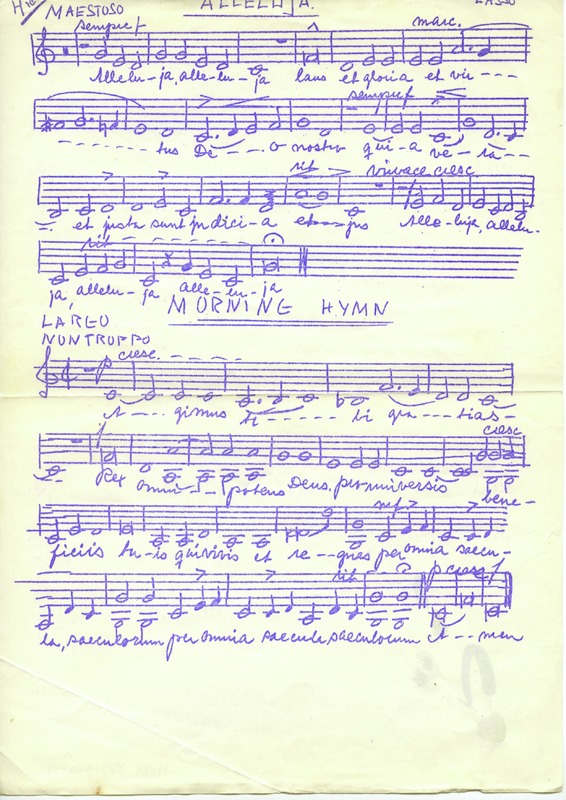 ALLELUJA. LASSO
MAESTOSO
sempre f marc.
Allelu-ja, alle-lu-ja laus et gloria et vir ----
sempre f
------- tus De ---. o nostro qui-a ve-ra---
rit vivace cresc
et justa sunt judici-a e jus Alle-luja, allelu-
rit
ja, allelu-ja alle-lu-ja
MORNING HYMN
LARGO
NONTROPPO
p cresc. - - - -
A ---. gimus ti ------ bi gra ---tias-
cresc
f
Rex omni - - potens Deus, pro universis bene-
mf
ficiis tu-is qui vivis et re--gnas per omnia saecu-
rit p cresc f
la, saeculorum per omnia saecula saeculorum A - - men